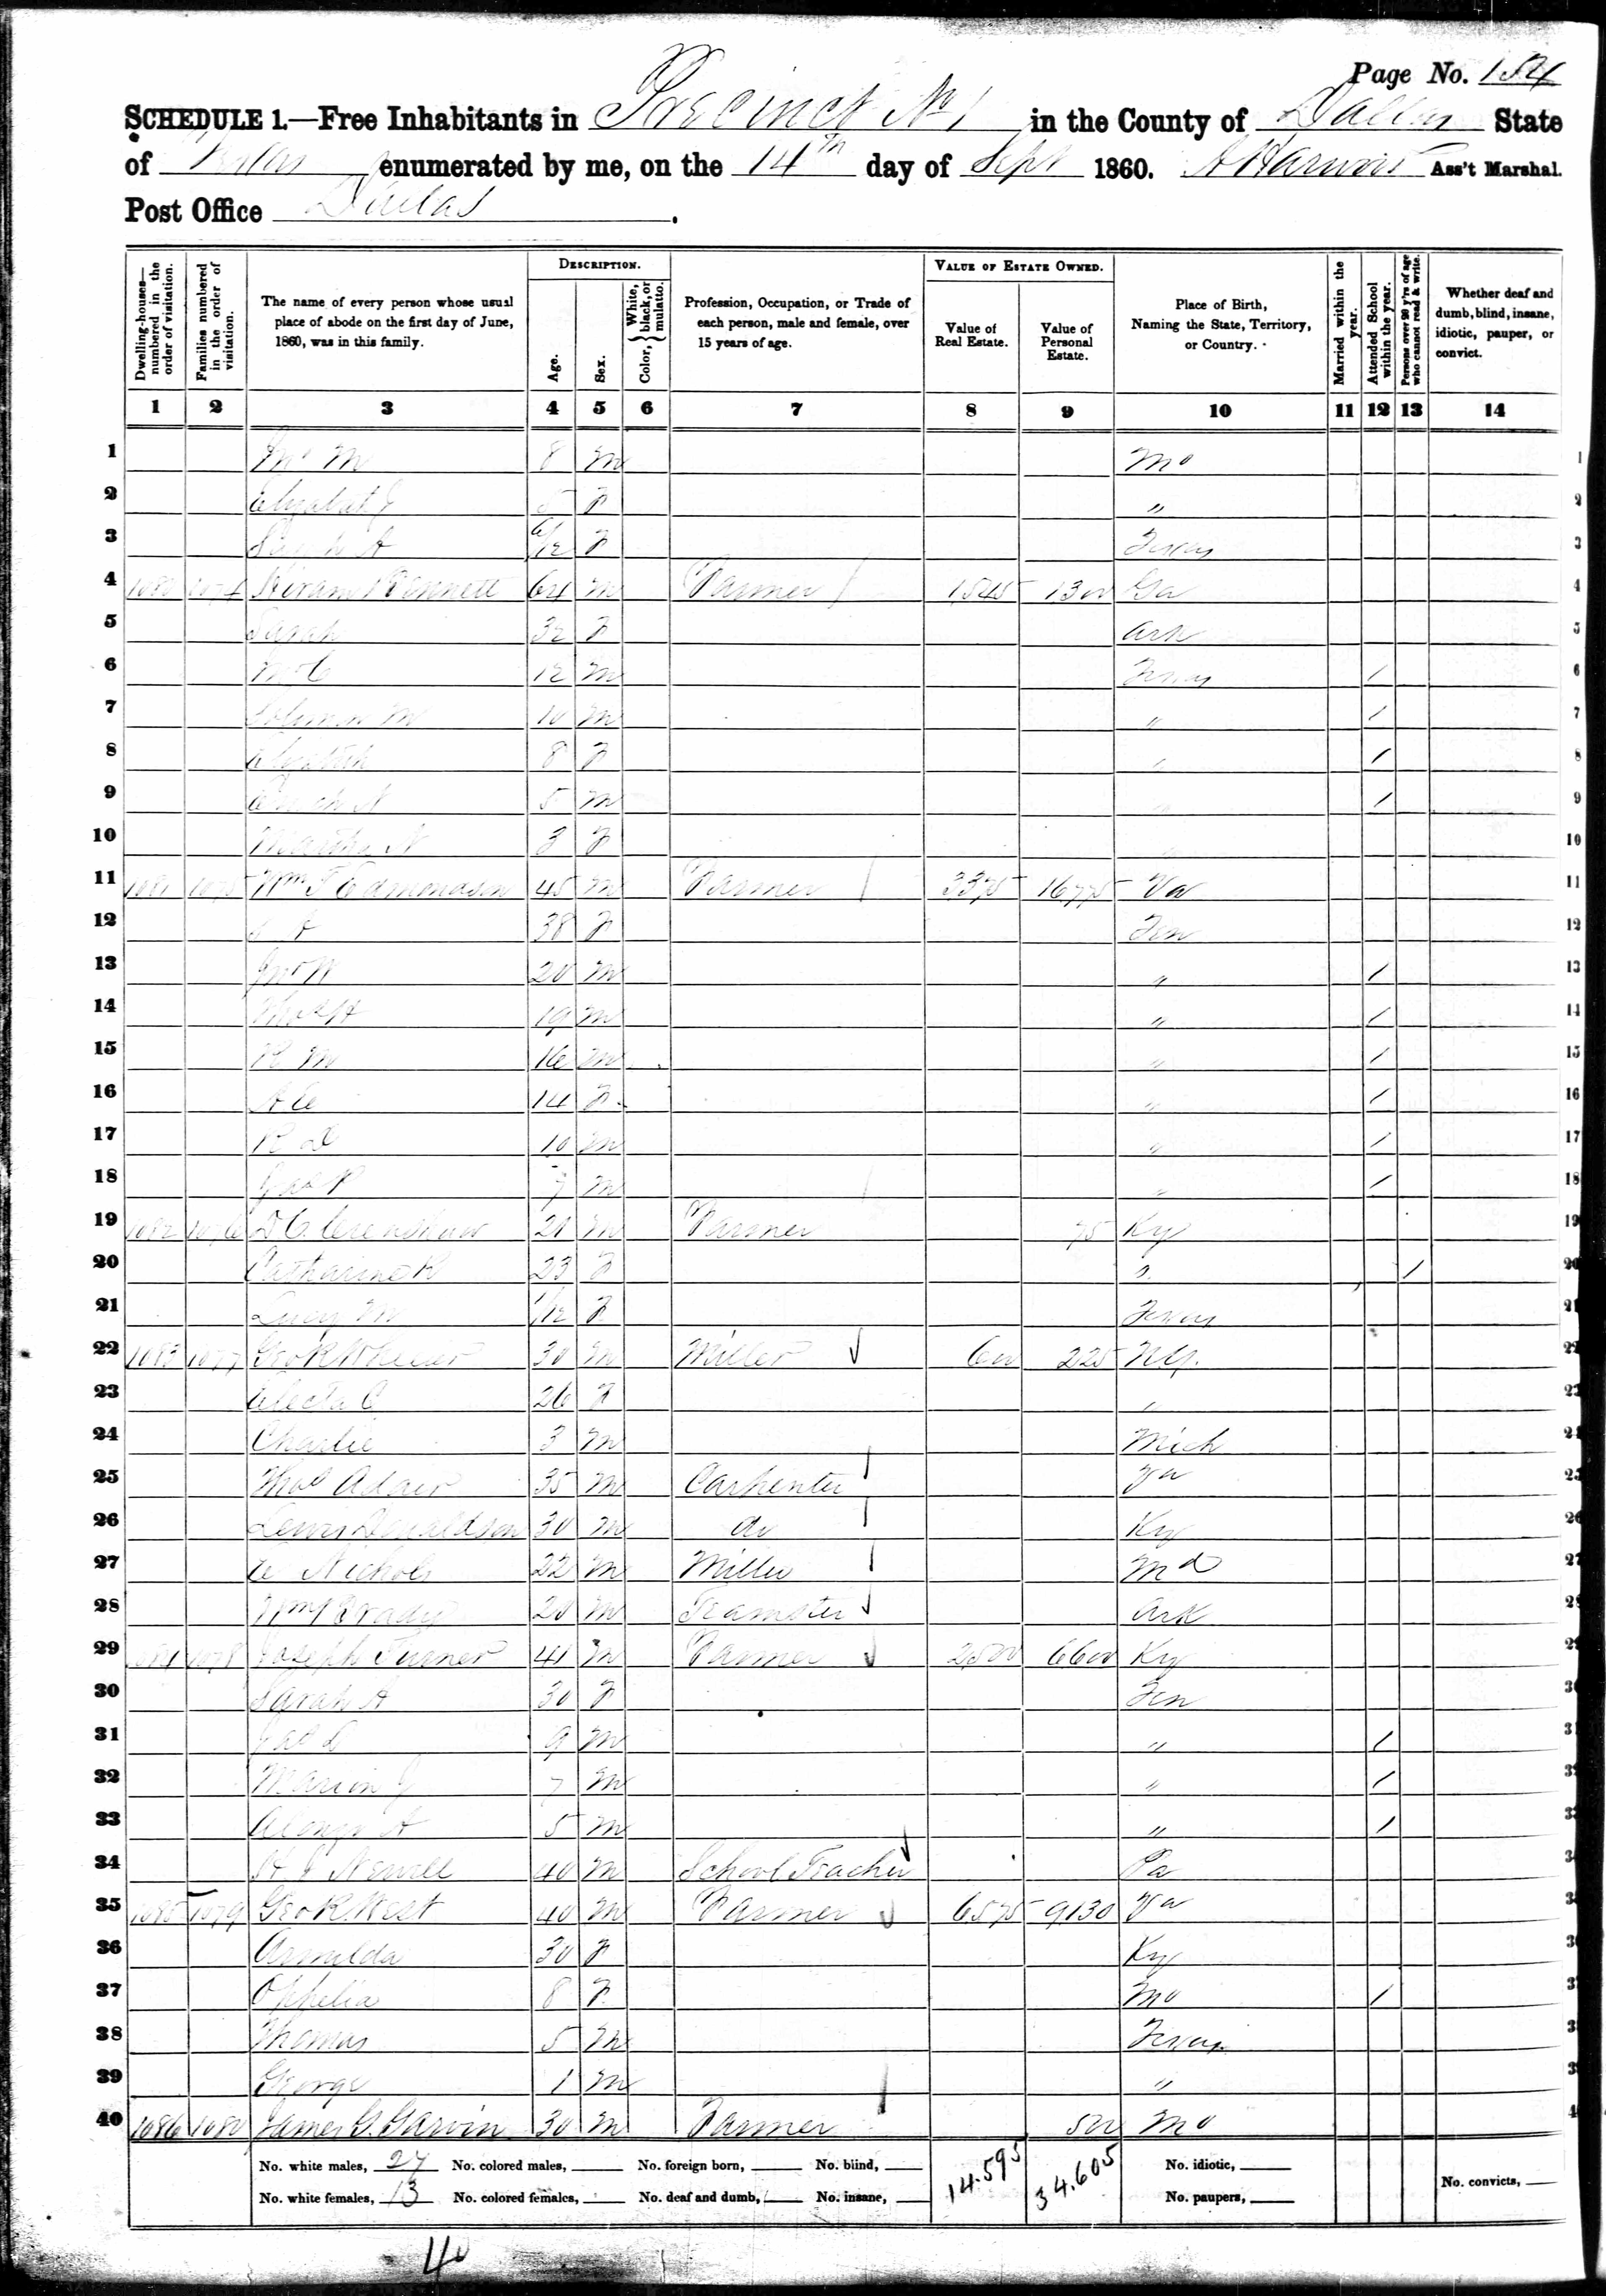 Page No. 154
SCHEDULE 1.—Free Inhabitants in Precinct No 1 in the County of Dallas State
of Texas enumerated by me, on the 14th day of Sept 1860. Ass't Marshal.
Post Office Dallas.
Dwelling-houses—numbered in the order of visitation.
Families numbered in the order of visitation.
The name of every person whose usual place of abode on the first day of June, 1860, was in this family.
DESCRIPTION.
Age.
Sex.
Color, White, black, or mulatto.
Profession, Occupation, or Trade of each person, male and female, over 15 years of age.
VALUE OF ESTATE OWNED.
Value of Real Estate.
Value of Personal Estate.
Place of Birth, Naming the State, Territory, or Country.
Married within the year.
Attended School within the year.
Persons over 20 y'rs of age who cannot read & write.
Whether deaf and dumb, blind, insane, idiotic, pauper, or convict.
1 2 3 4 5 6 7 8 9 10 11 12 13 14
1 M 8 m Mo 1
2 Elizabet J 5 F " 2
3 Sarah A /12 F Texas 3
4 1080 1074 Hiram Bennett 64 m Farmer 1545 1300 Ga 4
5 Sarah 32 F Ark 5
6 12 m Texas / 6
7 M 10 m " / 7
8 8 F " / 8
9 5 m " / 9
10 Martha A 3 F 10
11 1081 1075 Wm T Edmondson 45 m Farmer 3375 1675 Va 11
12 38 F Ten 12
13 Jno W 20 m " / 13
14 Thos H 19 m " / 14
15 R M 16 m " / 15
16 14 F " / 16
17 R D 10 m " / 17
18 Jas P 7 m " / 18
19 1082 1076 D C Crenshaw 21 m Farmer 75 Ky 19
20 Catharine R 23 F " / 20
21 Lucy M 1/12 F Texas 21
22 1083 1077 Geo K Wheeler 30 m Miller 600 225 N Y. 22
23 Electa C 26 F " 23
24 Charlie 3 m Mich 24
25 Thos Adair 35 m Carpenter Va 25
26 Lewis Donaldson 30 m do Ky 26
27 Nichols 22 m Miller Md 27
28 Wm Brady 20 m Teamster Ark 28
29 1084 1078 Joseph Turner 41 m Farmer 2500 6600 Ky 29
30 Sarah A 30 F Ten 30
31 Jas L 9 m " / 31
32 Marion J 7 m " / 32
33 Alonzo A 5 m " / 33
34 H J Newell 40 m School Teacher Pa 34
35 1085 1079 Geo K. West 40 m Farmer 6575 9130 Va 35
36 Armilda 30 F Ky 36
37 Ophelia 8 F Mo / 37
38 Thomas 5 m Texas 38
39 George 1 m " 39
40 1086 1080 James G. Garvin 30 m Farmer 500 Mo 40
No. white males, 27 No. colored males, No. foreign born, No. blind, 14.595 34.605 No. idiotic,
No. white females, 13 No. colored females, No. deaf and dumb, No. insane, No. paupers, No. convicts,
40